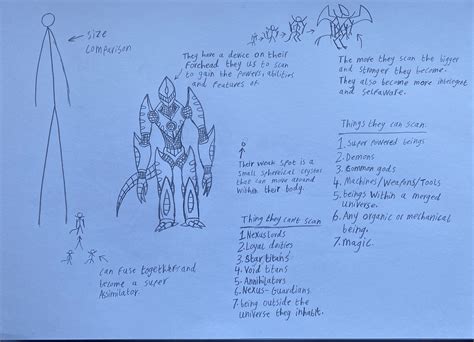 size
comparison
They have a device on their
forehead they us to scan
to gain the powers, abilities
and features of.
The more they scan the bigger
and stronger they become.
They also become more intelegent and
selfaware.
Their weak spot is a
small sphereical crystal
that can move around
within their body.
Things they can scan:
1. Super powered beings
2. Demons
3. Common gods
4. Machines/Weapons/Tools
5. beings within a merged
universe.
6. Any organic or mechanical
being.
7. Magic.
Thing they cant scan
1. Nexuslords
2. Loyal daities
3. Star titans
4. Void titans
5. Annihilators
6. Nexus-Guardians.
7. being outside the
universe they inhabit.
can fuse togethers and
become a super
Assimilator.